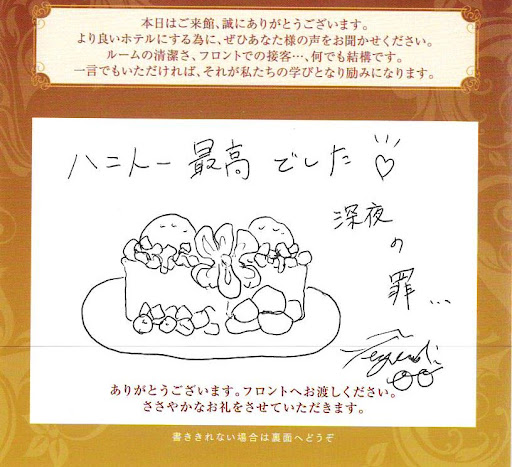 本日はご来館、誠にありがとうございます。
より良いホテルにする為に、ぜひあなた様の声をお聞かせください。
ルームの清潔さ、フロントでの接客…、何でも結構です。
一言でもいただければ、それが私たちの学びとなり励みになります。
ハニトー 最高 でした♡
深夜
の
罪...
ありがとうございます。フロントへお渡しください。
ささやかなお礼をさせていただきます。
書ききれない場合は裏面へどうぞ